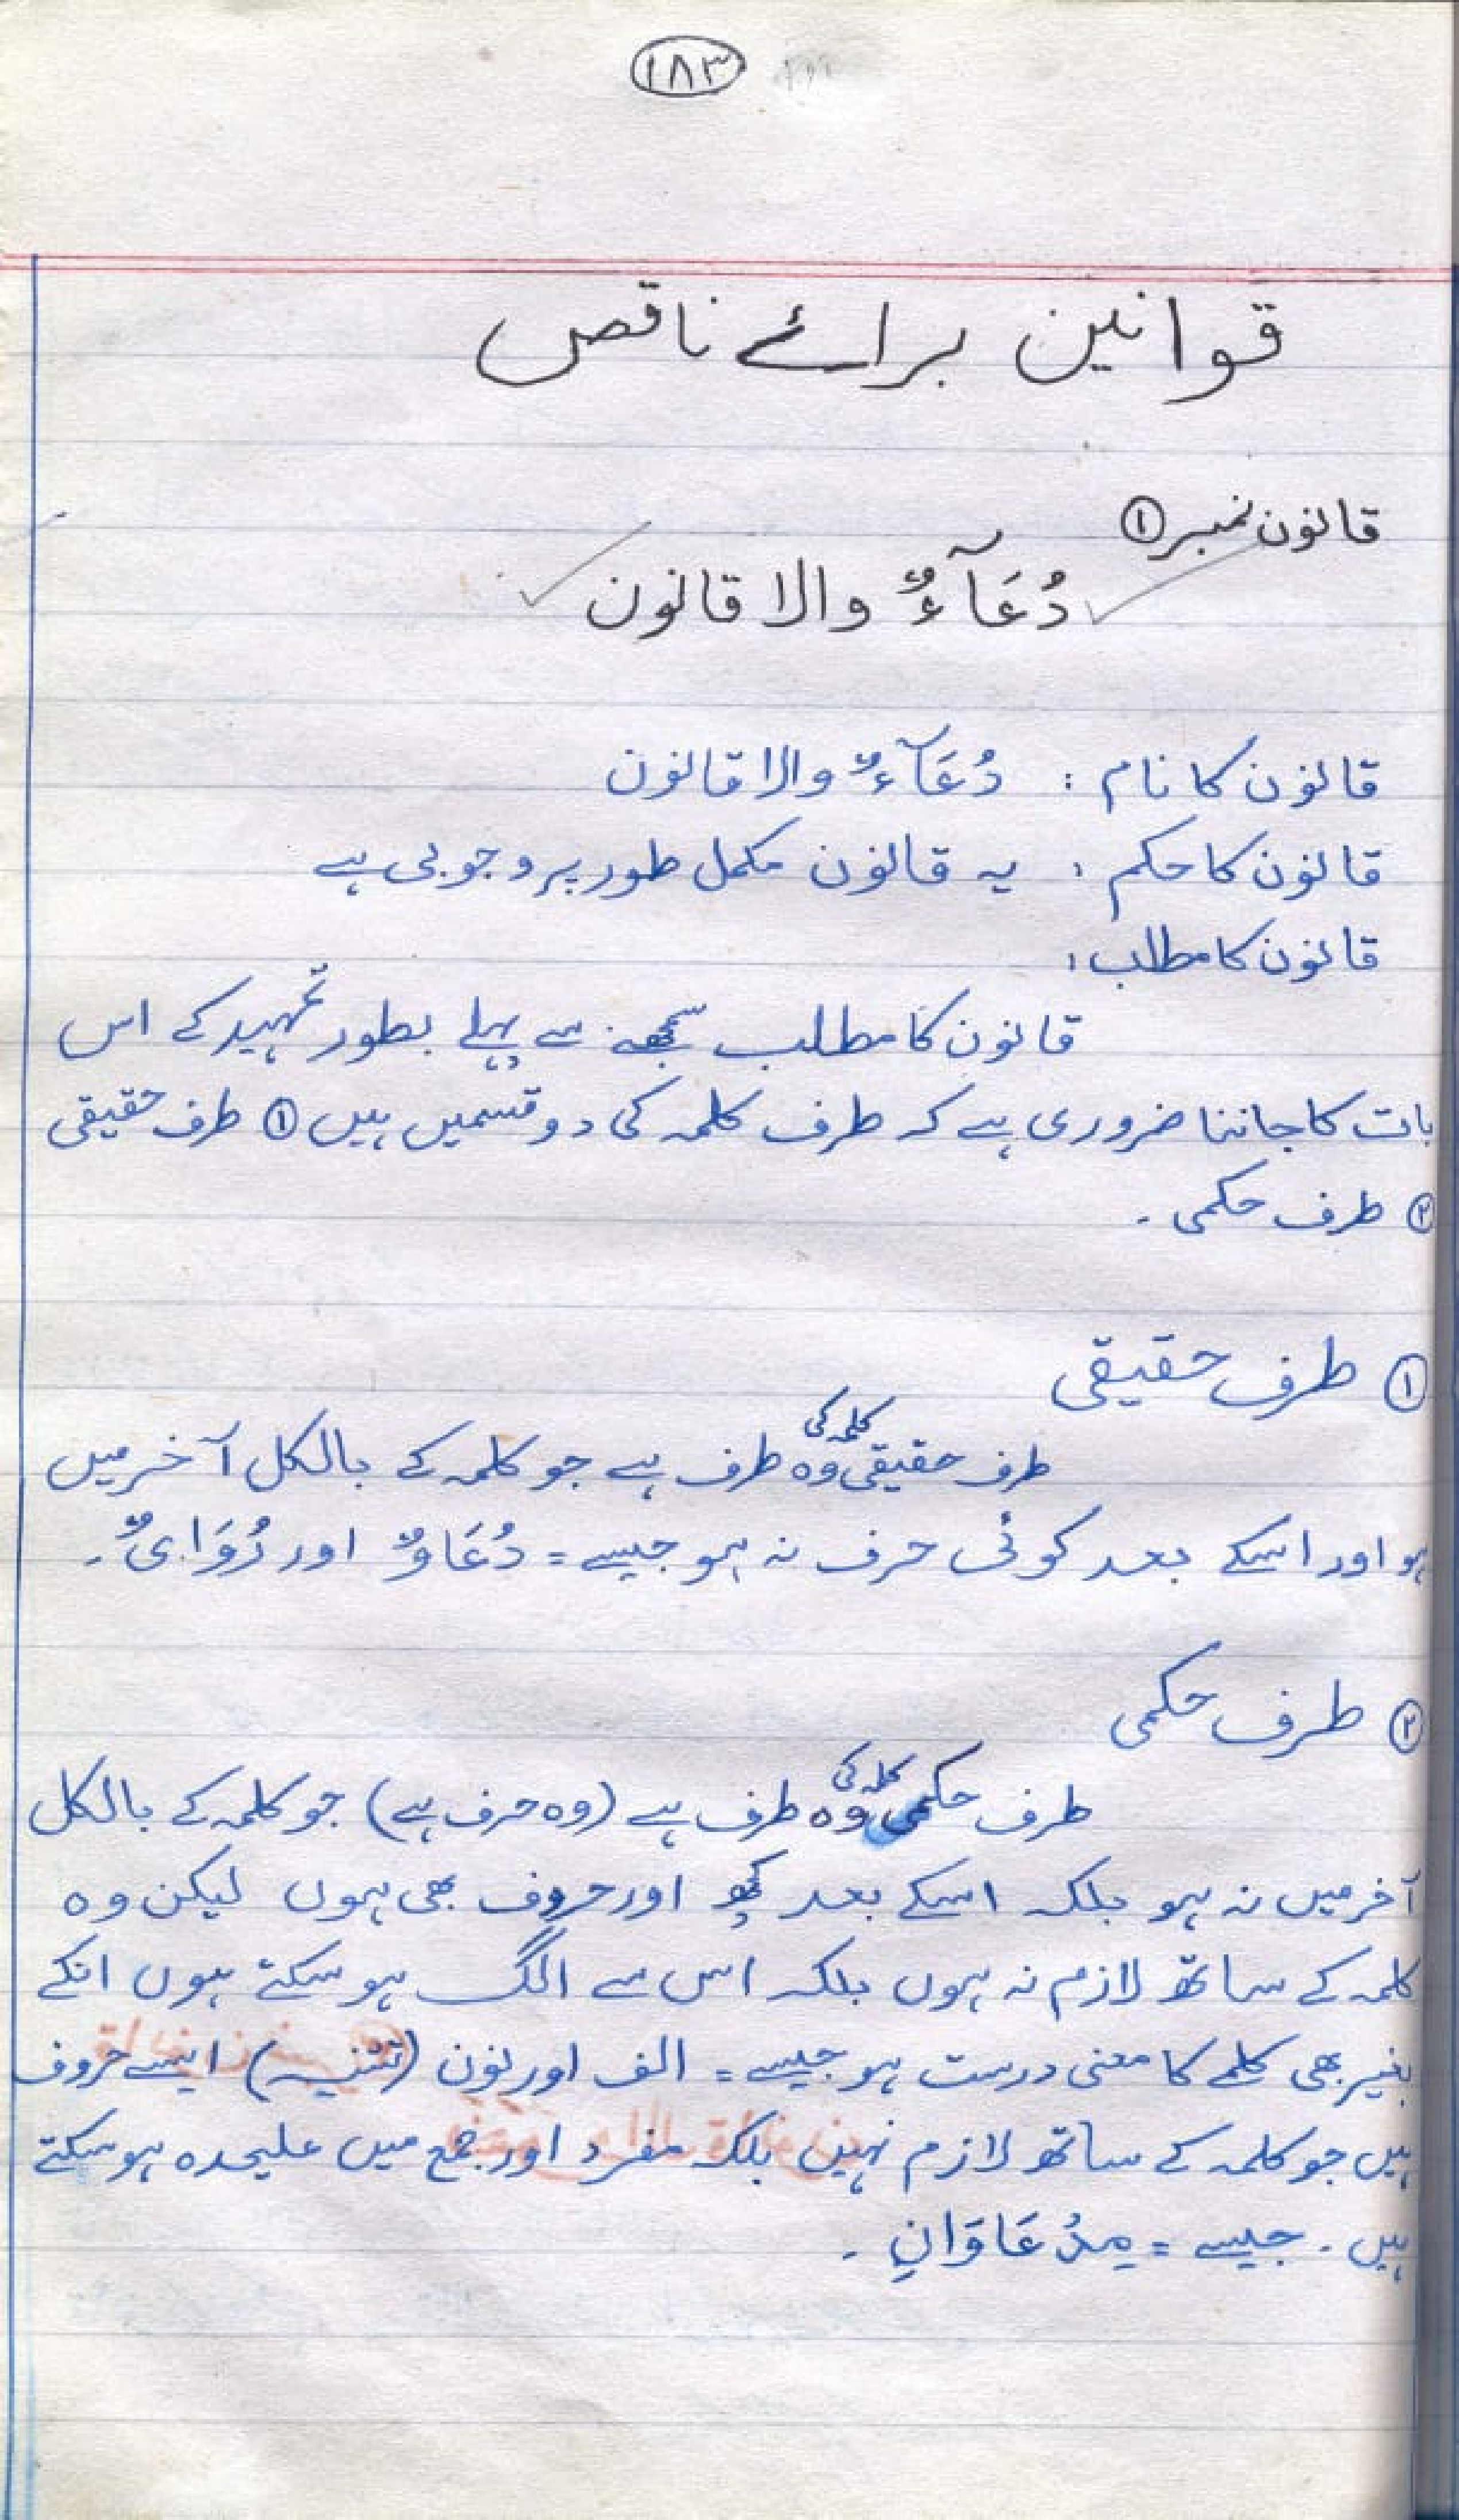 ۱۸۳
قوانین برائے ناقص
قانون نمبر ①
دُعَآءٌ والا قانون
قانون کا نام : دُعَآءٌ والا قانون
قانون کا حکم : یہ قانون مکمل طور پر وجوبی ہے
قانون کا مطلب :
قانون کا مطلب سمجھنے سے پہلے بطور تمہید کے اس
بات کا جاننا ضروری ہے کہ طرف کلمہ کی دو قسمیں ہیں ① طرف حقیقی
② طرف حکمی ۔
① طرف حقیقی
طرف حقیقی کلمہ کی وہ طرف ہے جو کلمہ کے بالکل آخر میں
ہو اور اسکے بعد کوئی حرف نہ ہو جیسے = دُعَاوٌ اور رُوَایٌ ۔
② طرف حکمی
طرف حکمی کلمہ کی وہ طرف ہے (وہ حرف ہے) جو کلمہ کے بالکل
آخر میں نہ ہو بلکہ اسکے بعد کچھ اور حروف بھی ہوں لیکن وہ
کلمہ کے ساتھ لازم نہ ہوں بلکہ اس سے الگ ہو سکتے ہوں انکے
بغیر بھی کلمے کا معنی درست ہو جیسے = الف اور نون (تثنیہ) ایسے حروف
ہیں جو کلمہ کے ساتھ لازم نہیں بلکہ مفرد اور جمع میں علیحدہ ہو سکتے
ہیں ۔ جیسے = مِدْعَاوَانِ ۔